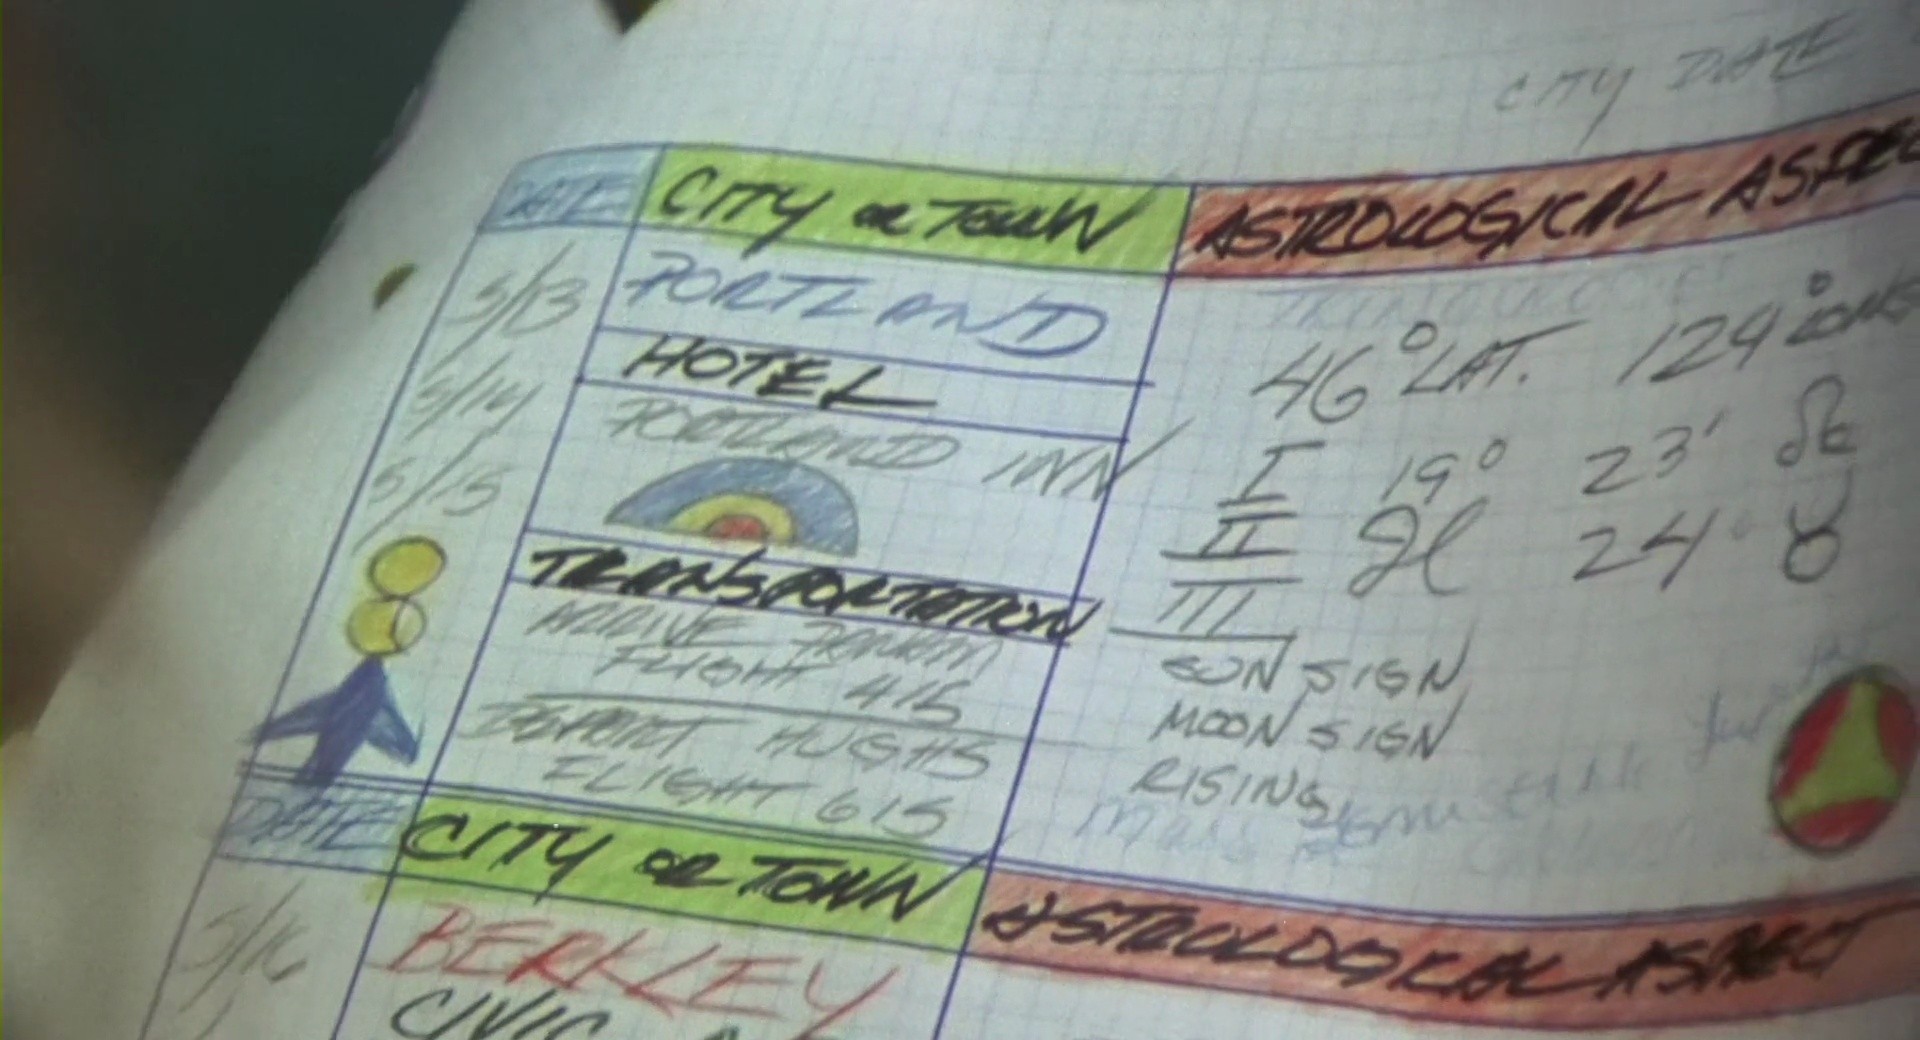 CITY DATE
DATE CITY OR TOWN ASTROLOGICAL ASPEC
5/13 PORTLAND
46° LAT. 124° LONG
5/14 HOTEL
I 19° 23' ♌
PORTLAND INN
5/15
II 24' ♉
III
TRANSPORTATION
ARRIVE
FLIGHT 415
SUN SIGN
DEPART HUGHS
MOON SIGN
FLIGHT 615
RISING
DATE CITY OR TOWN ASTROLOGICAL ASPECT
5/16 BERKLEY
CIVIC